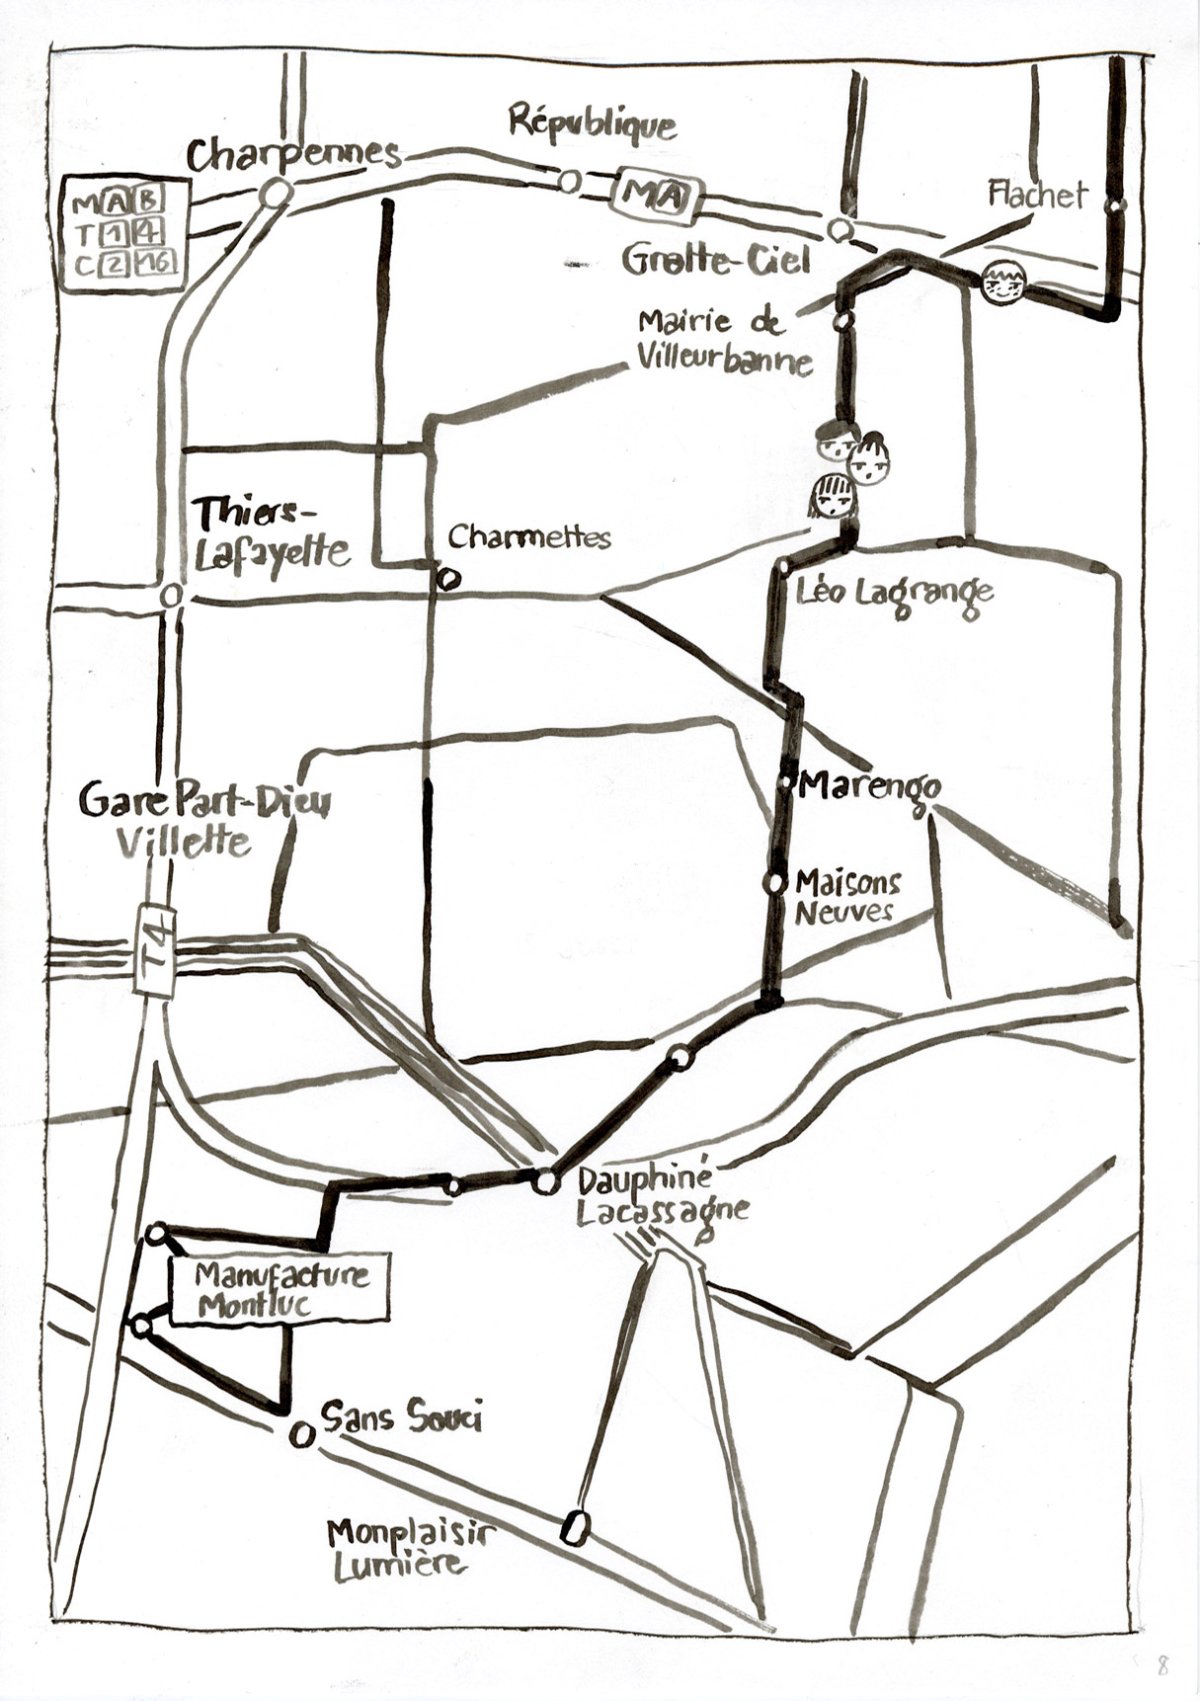 République
Charpennes
M A B
T 1 4
C 2 16
MA
Flachet
Gratte-Ciel
Mairie de
Villeurbanne
Thiers-
Lafayette
Charmettes
Léo Lagrange
Gare Part-Dieu
Villette
Marengo
Maisons
Neuves
T4
Dauphiné
Lacassagne
Manufacture
Montluc
Sans Souci
Monplaisir
Lumière
8